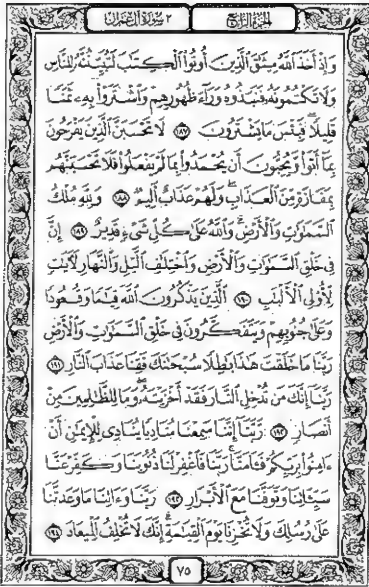 الجزء الرابع
٣ سورة آل عمران
وَإِذْ أَخَذَ ٱللَّهُ مِيثَٰقَ ٱلَّذِينَ أُوتُوا۟ ٱلْكِتَٰبَ لَتُبَيِّنُنَّهُۥ لِلنَّاسِ
وَلَا تَكْتُمُونَهُۥ فَنَبَذُوهُ وَرَآءَ ظُهُورِهِمْ وَٱشْتَرَوْا۟ بِهِۦ ثَمَنًا
قَلِيلًا ۖ فَبِئْسَ مَا يَشْتَرُونَ ١٨٧ لَا تَحْسَبَنَّ ٱلَّذِينَ يَفْرَحُونَ
بِمَآ أَتَوا۟ وَّيُحِبُّونَ أَن يُحْمَدُوا۟ بِمَا لَمْ يَفْعَلُوا۟ فَلَا تَحْسَبَنَّهُم
بِمَفَازَةٍ مِّنَ ٱلْعَذَابِ ۖ وَلَهُمْ عَذَابٌ أَلِيمٌ ١٨٨ وَلِلَّهِ مُلْكُ
ٱلسَّمَٰوَٰتِ وَٱلْأَرْضِ ۗ وَٱللَّهُ عَلَىٰ كُلِّ شَىْءٍ قَدِيرٌ ١٨٩ إِنَّ
فِى خَلْقِ ٱلسَّمَٰوَٰتِ وَٱلْأَرْضِ وَٱخْتِلَٰفِ ٱلَّيْلِ وَٱلنَّهَارِ لَءَايَٰتٍ
لِّأُو۟لِى ٱلْأَلْبَٰبِ ١٩٠ ٱلَّذِينَ يَذْكُرُونَ ٱللَّهَ قِيَٰمًا وَقُعُودًا
وَعَلَىٰ جُنُوبِهِمْ وَيَتَفَكَّرُونَ فِى خَلْقِ ٱلسَّمَٰوَٰتِ وَٱلْأَرْضِ
رَبَّنَا مَا خَلَقْتَ هَٰذَا بَٰطِلًا سُبْحَٰنَكَ فَقِنَا عَذَابَ ٱلنَّارِ ١٩١
رَبَّنَآ إِنَّكَ مَن تُدْخِلِ ٱلنَّارَ فَقَدْ أَخْزَيْتَهُۥ ۖ وَمَا لِلظَّٰلِمِينَ مِنْ
أَنصَارٍ ١٩٢ رَّبَّنَآ إِنَّنَا سَمِعْنَا مُنَادِيًا يُنَادِى لِلْإِيمَٰنِ أَنْ
ءَامِنُوا۟ بِرَبِّكُمْ فَـَٔامَنَّا ۚ رَبَّنَا فَٱغْفِرْ لَنَا ذُنُوبَنَا وَكَفِّرْ عَنَّا
سَيِّـَٔاتِنَا وَتَوَفَّنَا مَعَ ٱلْأَبْرَارِ ١٩٣ رَبَّنَا وَءَاتِنَا مَا وَعَدتَّنَا
عَلَىٰ رُسُلِكَ وَلَا تُخْزِنَا يَوْمَ ٱلْقِيَٰمَةِ ۗ إِنَّكَ لَا تُخْلِفُ ٱلْمِيعَادَ ١٩٤
٧٥